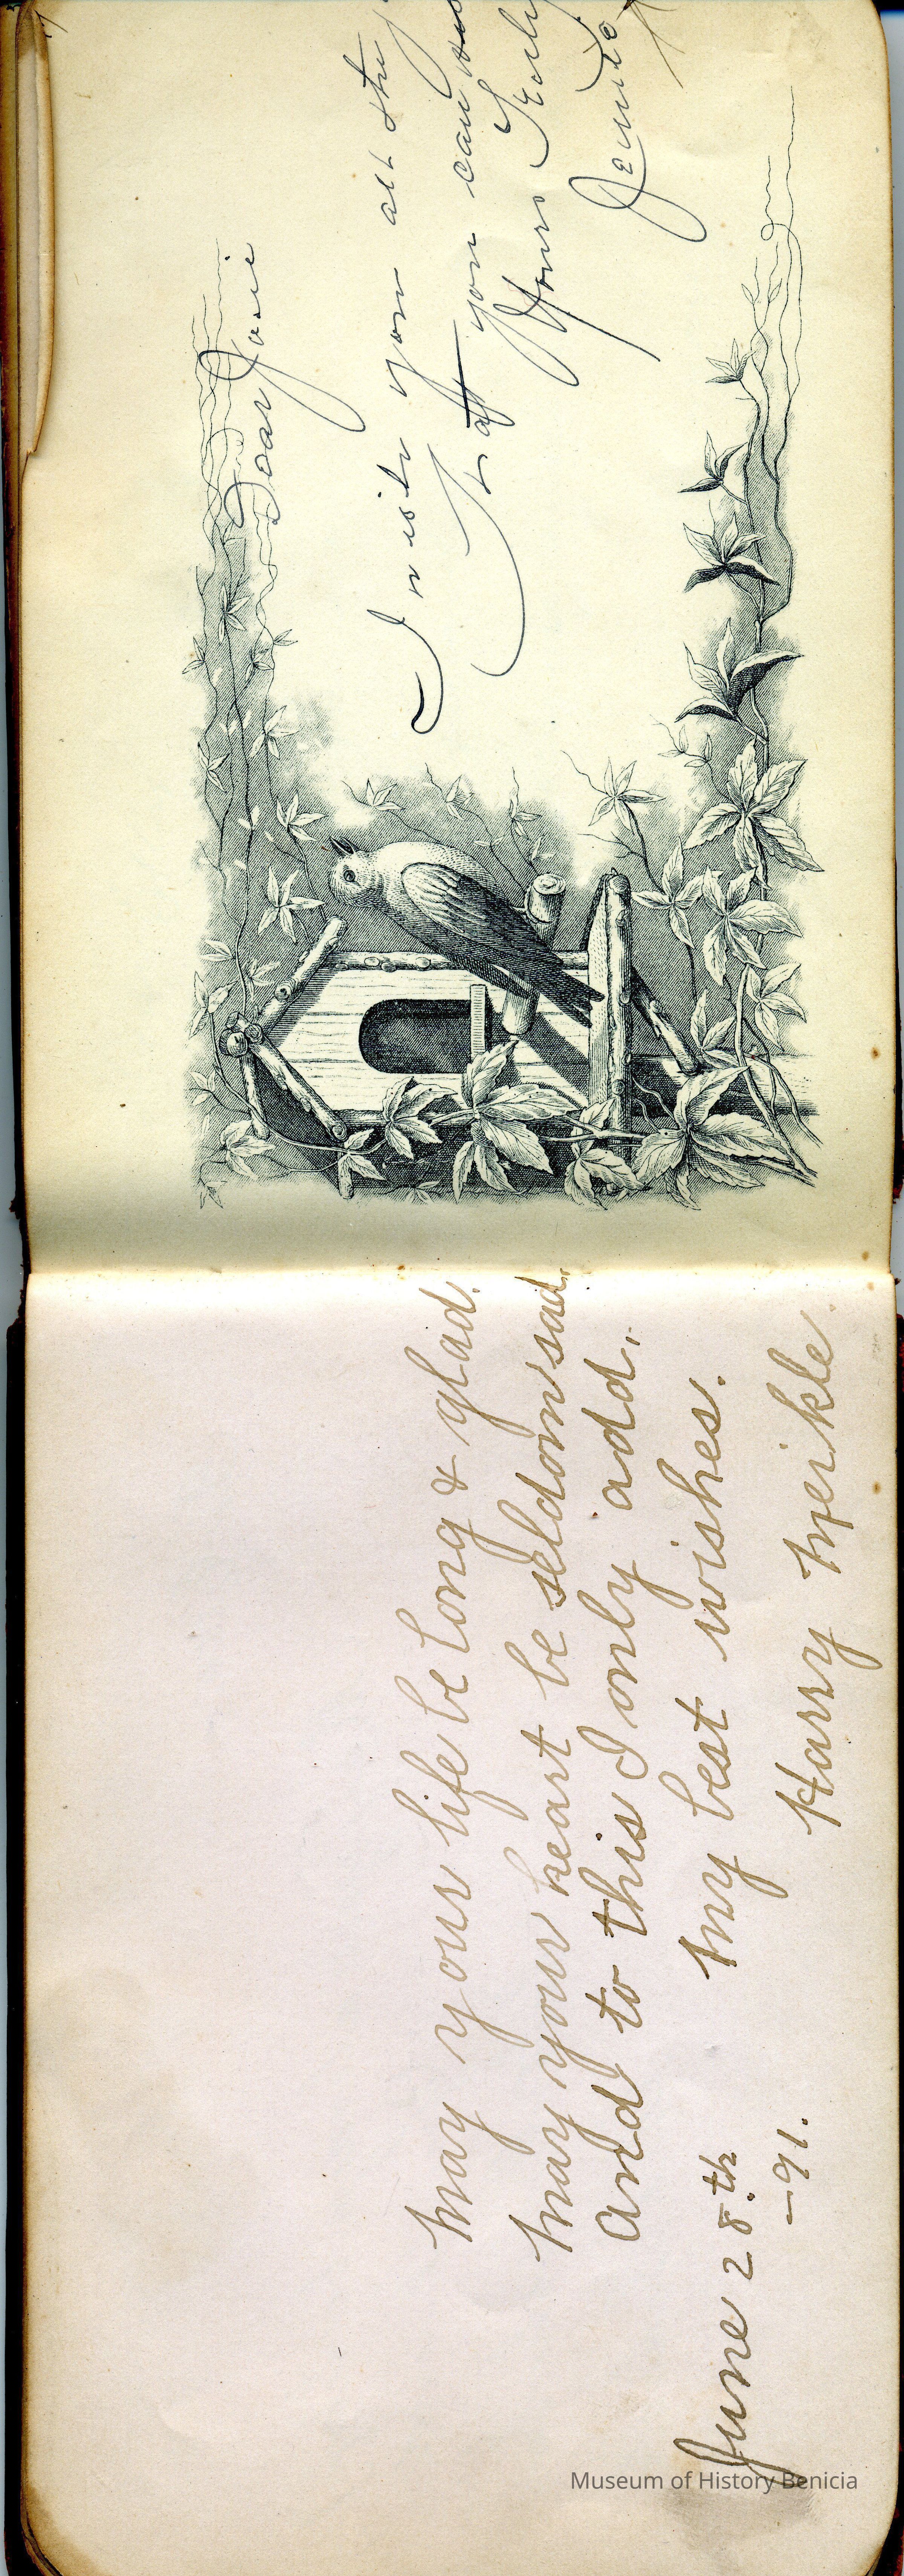 May your life be long & glad.
May your heart be seldom sad.
And to this I only add.
My best wishes.
June 28.th
—91.
Harry Meikle.
Dear Josie
I wish you all the
That you can
Yours Truly
Jennie
Museum of History Benicia